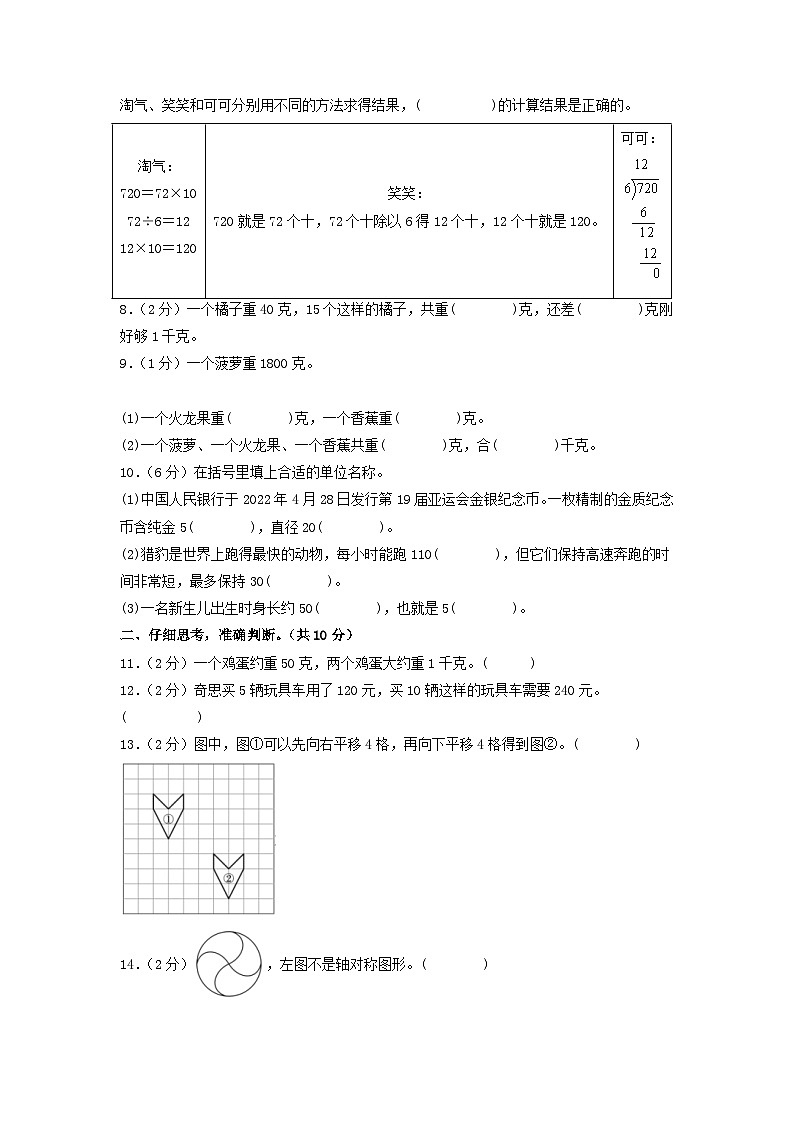 淘气、笑笑和可可分别用不同的方法求得结果，(　　　　)的计算结果是正确的。
淘气：
720＝72×10
72÷6＝12
12×10＝120
笑笑：
720就是72个十，72个十除以6得12个十，12个十就是120。
可可：
12
6)720
6
12
12
0
8.（2分）一个橘子重40克，15个这样的橘子，共重(　　　)克，还差(　　　)克刚
好够1千克。
9.（1分）一个菠萝重1800克。
(1)一个火龙果重(　　　)克，一个香蕉重(　　　)克。
(2)一个菠萝、一个火龙果、一个香蕉共重(　　　)克，合(　　　)千克。
10.（6分）在括号里填上合适的单位名称。
(1)中国人民银行于2022年4月28日发行第19届亚运会金银纪念币。一枚精制的金质纪念
币含纯金5(　　　)，直径20(　　　)。
(2)猎豹是世界上跑得最快的动物，每小时能跑110(　　　)，但它们保持高速奔跑的时
间非常短，最多保持30(　　　)。
(3)一名新生儿出生时身长约50(　　　)，也就是5(　　　)。
二、仔细思考，准确判断。（共10分）
11.（2分）一个鸡蛋约重50克，两个鸡蛋大约重1千克。(　　)
12.（2分）奇思买5辆玩具车用了120元，买10辆这样的玩具车需要240元。
(　　　　)
13.（2分）图中，图①可以先向右平移4格，再向下平移4格得到图②。(　　　)
①
②
14.（2分），左图不是轴对称图形。(　　　)